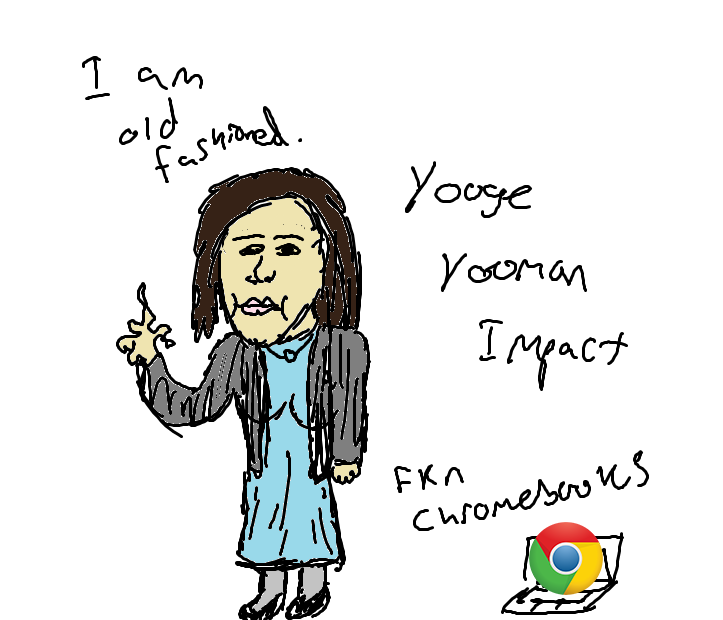 I am
old
fashioned.
Yooge
Yooman
Impact
FKn
Chromebooks